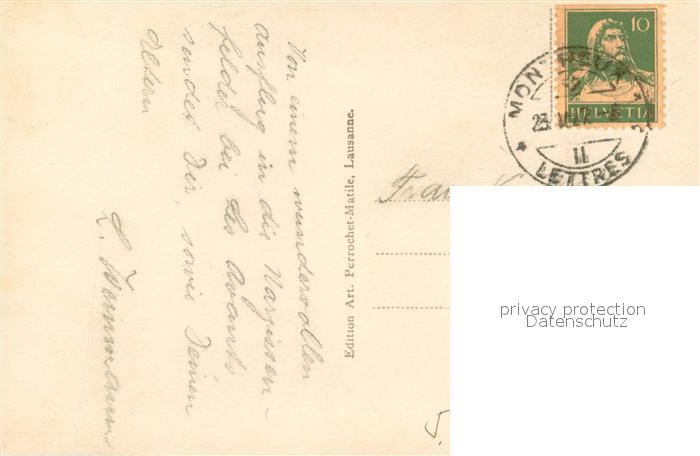 Von einem wundervollen
Ausflug in die Narzissen-
felder bei Les Avants
sendet Dir, sowie Deinen
Eltern
L.
Edition Art. Perrochet-Matile, Lausanne.
10
HELVETIA
MONTREUX
23. V
II
LETTRES
privacy protection
Datenschutz